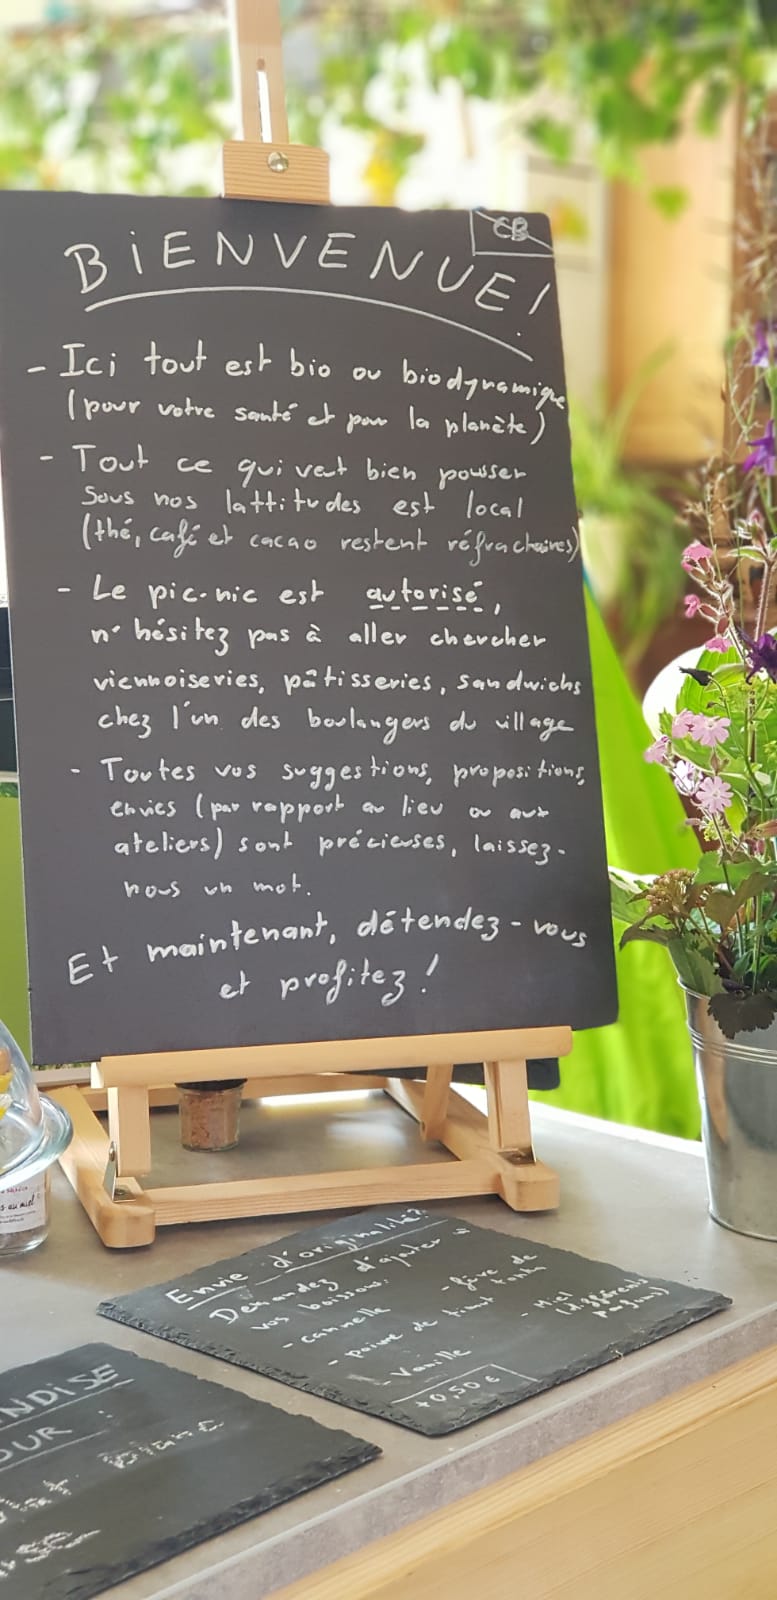 CB
BiENVENUE!
- Ici tout est bio ou biodynamique
(pour votre santé et pour la planète)
- Tout ce qui veut bien pousser
sous nos lattitudes est local
(thé, café et cacao restent réfractaires)
- Le pic-nic est autorisé,
n'hésitez pas à aller chercher
viennoiseries, pâtisseries, sandwichs
chez l'un des boulangers du village
- Toutes vos suggestions, propositions,
envies (par rapport au lieu ou aux
ateliers) sont précieuses, laissez-
nous un mot.
Et maintenant, détendez-vous
et profitez!
au miel
Envie d'originalité?
Demandez d'ajouter à
vos boissons:
- cannelle
- poivre de timut
- Vanille
- fève de
tonka
- Miel
(différents
parfums)
+0,50€
NDISE
OUR :
blanc